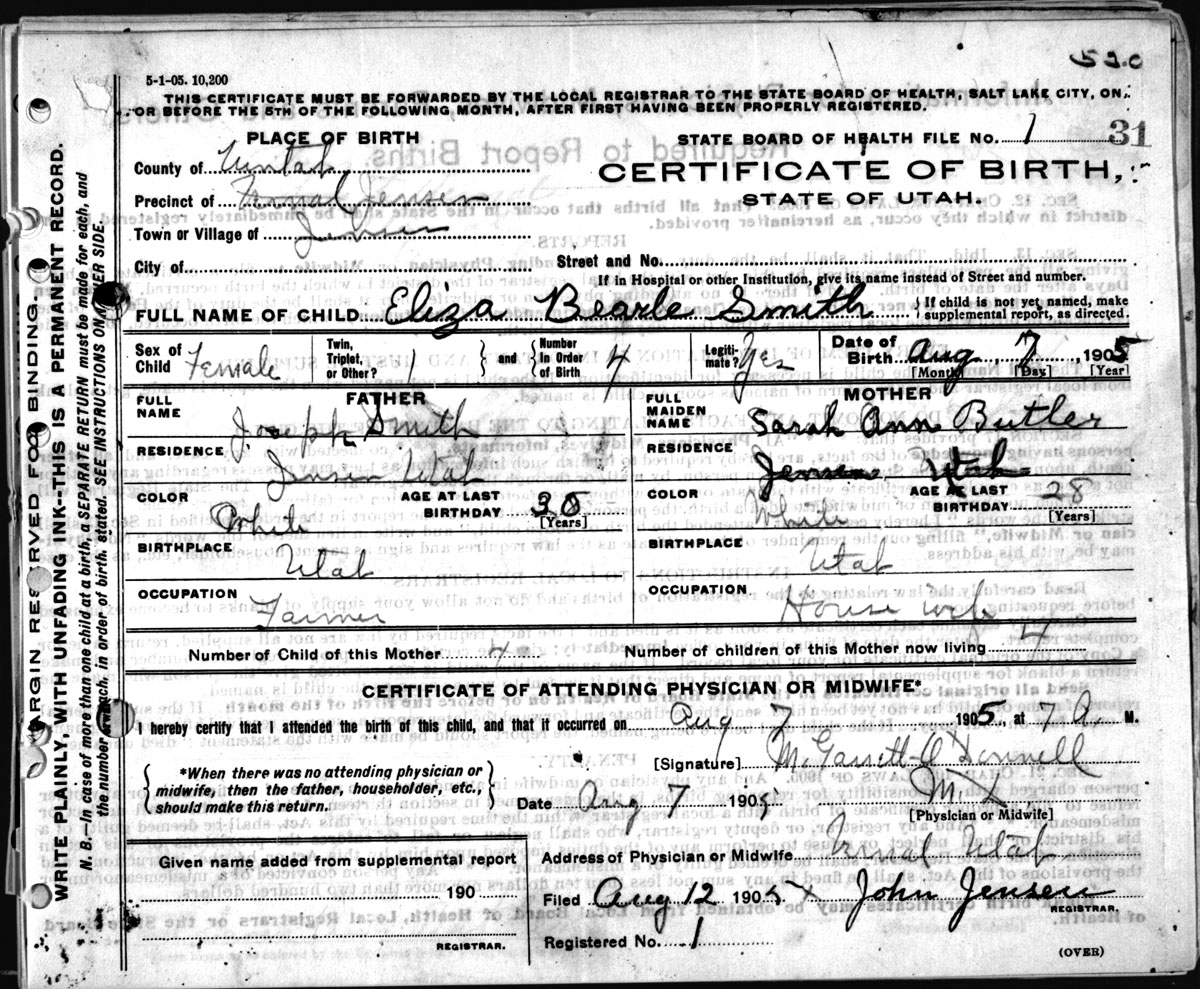 520
5-1-05. 10,200
THIS CERTIFICATE MUST BE FORWARDED BY THE LOCAL REGISTRAR TO THE STATE BOARD OF HEALTH, SALT LAKE CITY, ON,
OR BEFORE THE 5TH OF THE FOLLOWING MONTH, AFTER FIRST HAVING BEEN PROPERLY REGISTERED.
PLACE OF BIRTH
STATE BOARD OF HEALTH FILE No. 1 31
County of Uintah
CERTIFICATE OF BIRTH,
Precinct of Vernal Jensen
STATE OF UTAH.
Town or Village of Jensen
City of Street and No.
If in Hospital or other Institution, give its name instead of Street and number.
FULL NAME OF CHILD Eliza Bearle Smith { If child is not yet named, make supplemental report, as directed.
Sex of Child Female Twin, Triplet, or Other? 1 } and { Number In Order of Birth 4 Legiti-mate? Yes Date of Birth Aug, 7, 1905
[Month] [Day] [Year]
FATHER MOTHER
FULL NAME Joseph Smith FULL MAIDEN NAME Sarah Ann Butler
RESIDENCE Jensen Utah RESIDENCE Jensen Utah
COLOR White AGE AT LAST BIRTHDAY [Years] COLOR White AGE AT LAST BIRTHDAY 28 [Years]
BIRTHPLACE Utah BIRTHPLACE Utah
OCCUPATION Farmer OCCUPATION House wife
Number of Child of this Mother 4 Number of children of this Mother now living 4
CERTIFICATE OF ATTENDING PHYSICIAN OR MIDWIFE*
I hereby certify that I attended the birth of this child, and that it occurred on Aug 7 1905, at 7 A. M.
[Signature]
*When there was no attending physician or midwife, then the father, householder, etc., should make this return.
Date Aug 7 1905 M.D.
[Physician or Midwife]
Given name added from supplemental report
Address of Physician or Midwife Vernal Utah
190
Filed Aug 12 1905 John Jensen
REGISTRAR.
REGISTRAR.
Registered No. 1
(OVER)
MARGIN RESERVED FOR BINDING.
WRITE PLAINLY, WITH UNFADING INK--THIS IS A PERMANENT RECORD.
N. B. In case of more than one child at a birth, a SEPARATE RETURN must be made for each, and
the number each, in order of birth, stated. SEE INSTRUCTIONS ON OTHER SIDE.